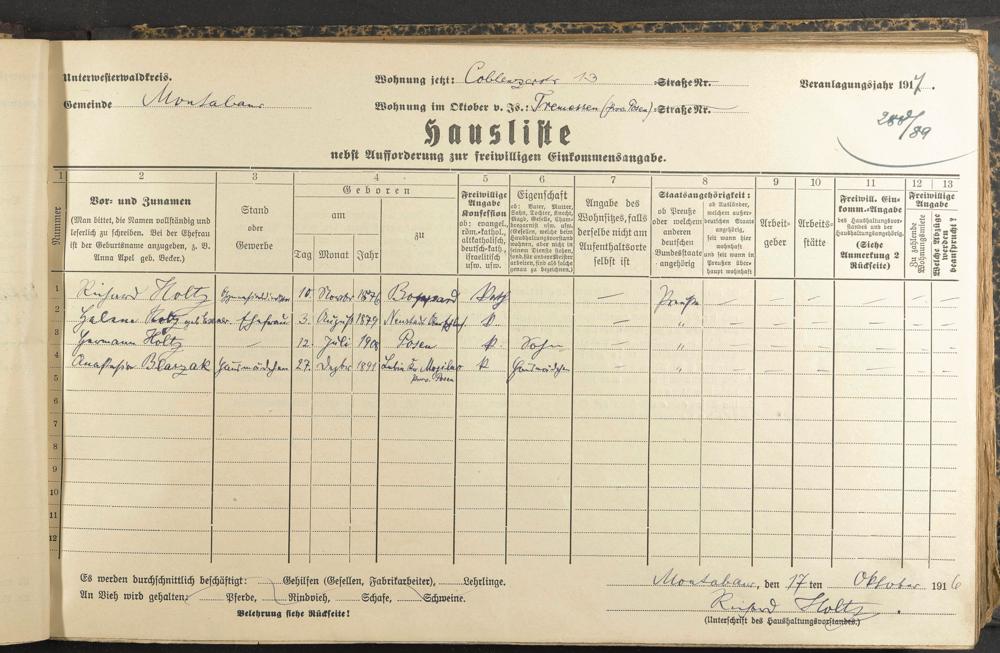 Unterwesterwaldkreis.
Gemeinde Montabaur
Wohnung jetzt: Coblenzerstr 13 Straße Nr.
Wohnung im Oktober v. Js.: Tremessen (Prov. Posen) Straße Nr.
Veranlagungsjahr 1917.
89
Hausliste
nebst Aufforderung zur freiwilligen Einkommensangabe.
1 2 3 4 5 6 7 8 9 10 11 12 13
Nummer
Vor- und Zunamen
(Man bittet, die Namen vollständig und
leserlich zu schreiben. Bei der Ehefrau
ist der Geburtsname anzugeben, z. B.
Anna Apel geb. Becker.)
Stand
oder
Gewerbe
Geboren
am
zu
Tag Monat Jahr
Freiwillige
Angabe
Konfession
ob: evangel.,
röm.-kathol.,
altkatholisch,
deutsch-kath.,
israelitisch
usw. usw.
Eigenschaft
ob: Vater, Mutter,
Sohn, Tochter, Knecht,
Magd, Geselle, Cham-
bregarnist usw. usw.
Angabe des
Wohnsitzes, falls
derselbe nicht am
Aufenthaltsorte
selbst ist
Staatsangehörigkeit:
ob Preuße
oder welchem
anderen
deutschen
Bundesstaate
angehörig
ob Ausländer,
welchem außer-
deutschen Staat
angehörig,
seit wann hier
wohnhaft
und seit wann in
Preußen über-
haupt wohnhaft
Arbeit-
geber
Arbeits-
stätte
Freiwill. Ein-
komm.-Angabe
des Haushaltungsvor-
standes und der
Haushaltungsangehörig.
(Siehe
Anmerkung 2
Rückseite)
Freiwillige
Angabe
Zu zahlende
Wohnungsmiete
Welche Abzüge
werden
beansprucht?
1 Richard Holtz 10. Novbr 1876 Boppard Kath — Preuße — — — — —
2 Helene Holtz geb. Ehefrau 3. August 1879 Neustadt K. — " — — — — —
3 Hermann Holtz — 12. Juli Posen K. Sohn — " — — — — —
4 Anastasia Blaszak Hausmädchen 27. Dezbr 1891 Kr. Mogilno K Hausmädchen — " — — — — —
Prov. Posen
5
6
7
8
9
10
11
12
Es werden durchschnittlich beschäftigt: Gehilfen (Gesellen, Fabrikarbeiter), Lehrlinge.
An Vieh wird gehalten: Pferde, Rindvieh, Schafe, Schweine.
Belehrung siehe Rückseite!
Montabaur, den 17 ten Oktober 1916
Richard Holtz.
(Unterschrift des Haushaltungsvorstandes.)